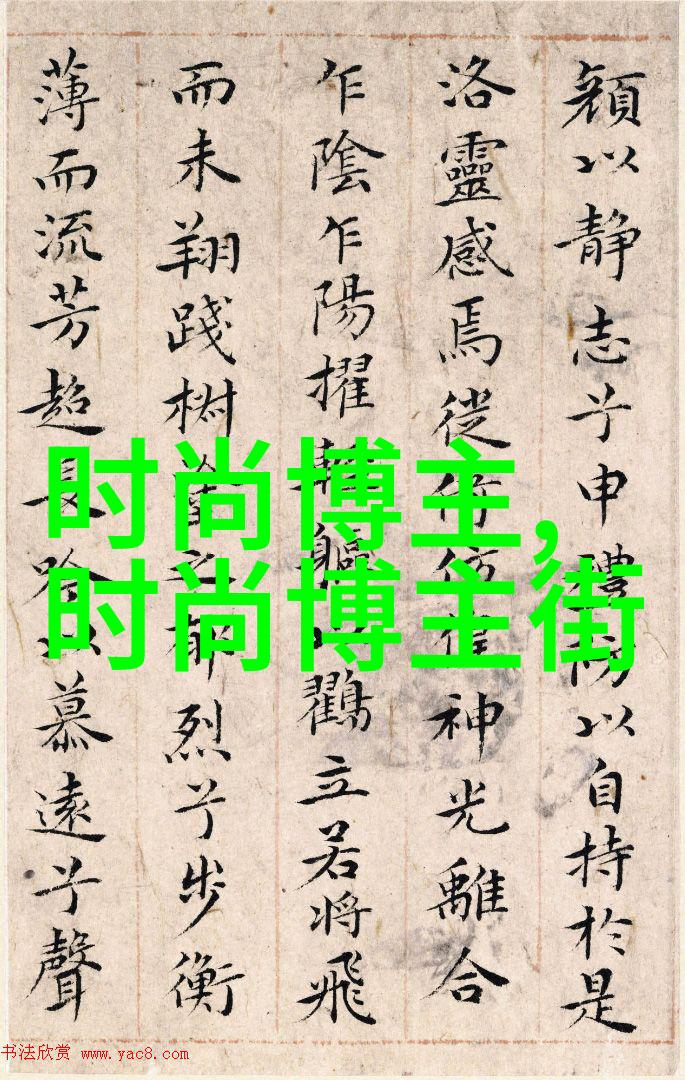 顔以静志兮申禮防以自持於是
洛靈感焉徙倚仿偟神光離合
乍陰乍陽擢輕軀以鸛立若将飛
而未翔踐椒塗之郁烈兮步衡
薄而流芳超長吟以慕遠兮聲
时尚博主,
时尚博主街
书法欣赏 www.yac8.com